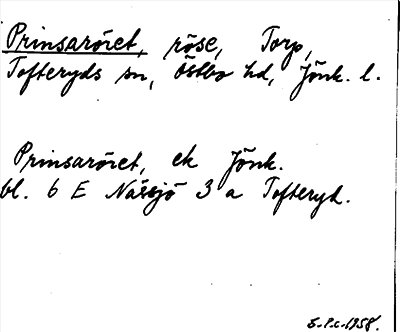 Prinsaröret, röse, Torp,
Tofteryds sn, Östbo hd, Jönk. l.
Prinsaröret, ek Jönk.
bl. 6 E Nässjö 3 a Tofteryd.
E.P.c. 1958.